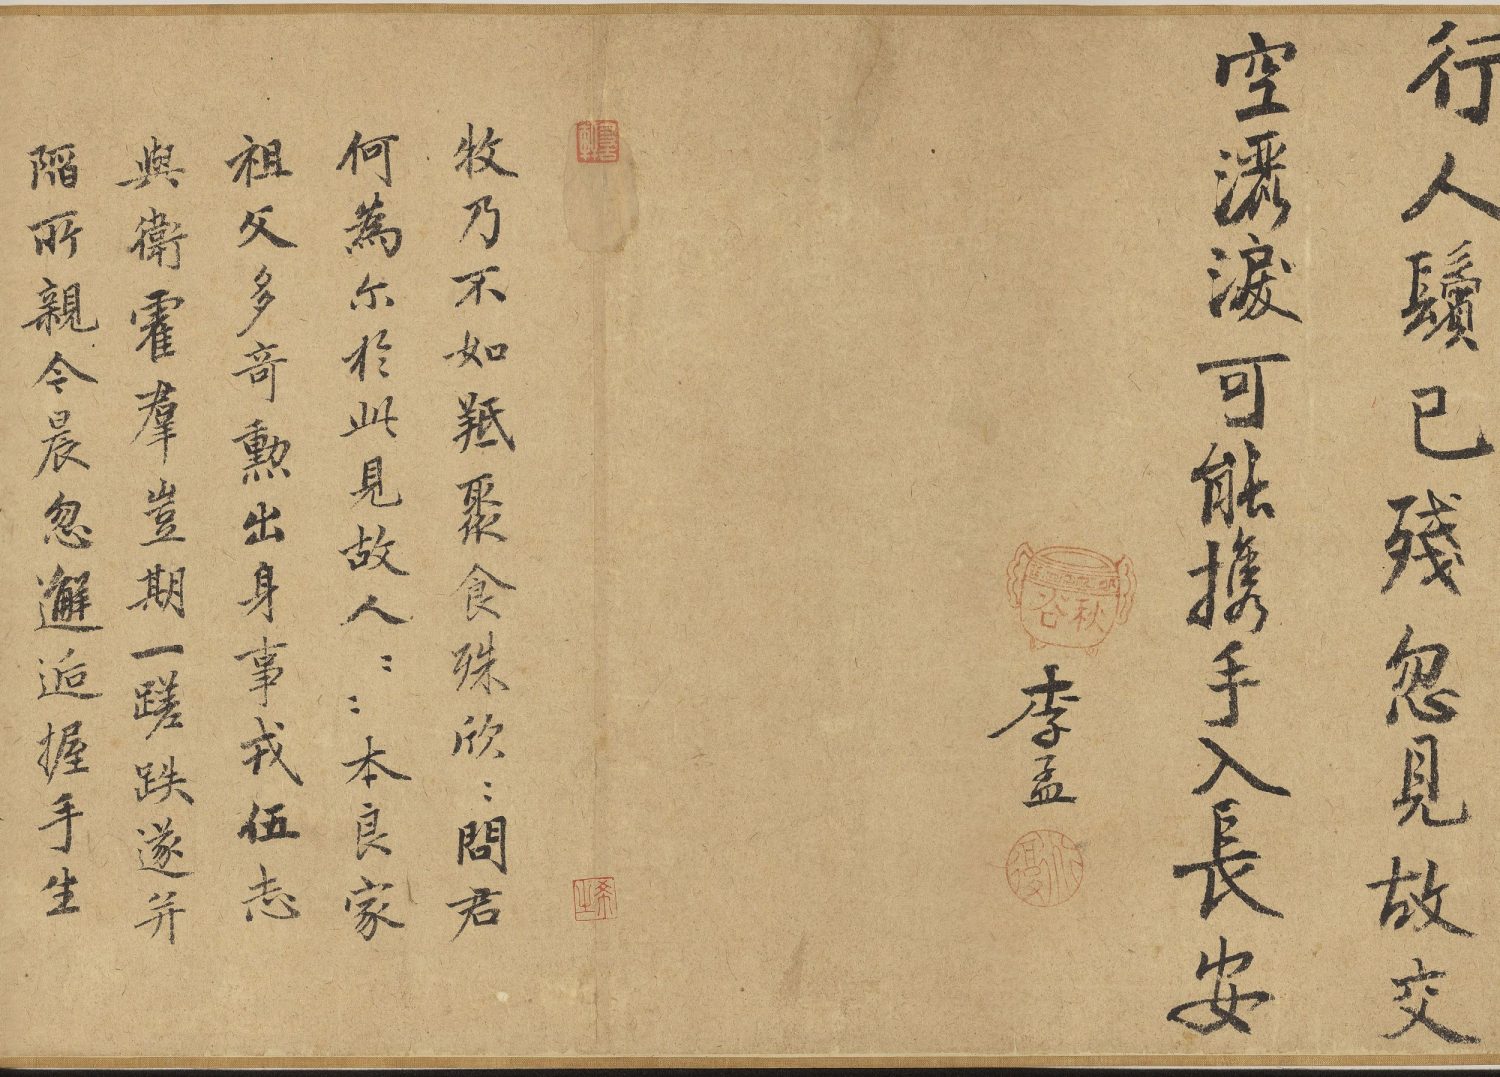 行人鬢已殘忽見故交
空灑淚可能攜手入長安
秋谷
李孟
道復
牧乃不如羝聚食殊欣〻問君
何為尓於此見故人〻〻本良家
祖父多竒勲出身事戎伍志
與衛霍羣豈期一蹉跌遂并
陷所親今晨忽邂逅握手生